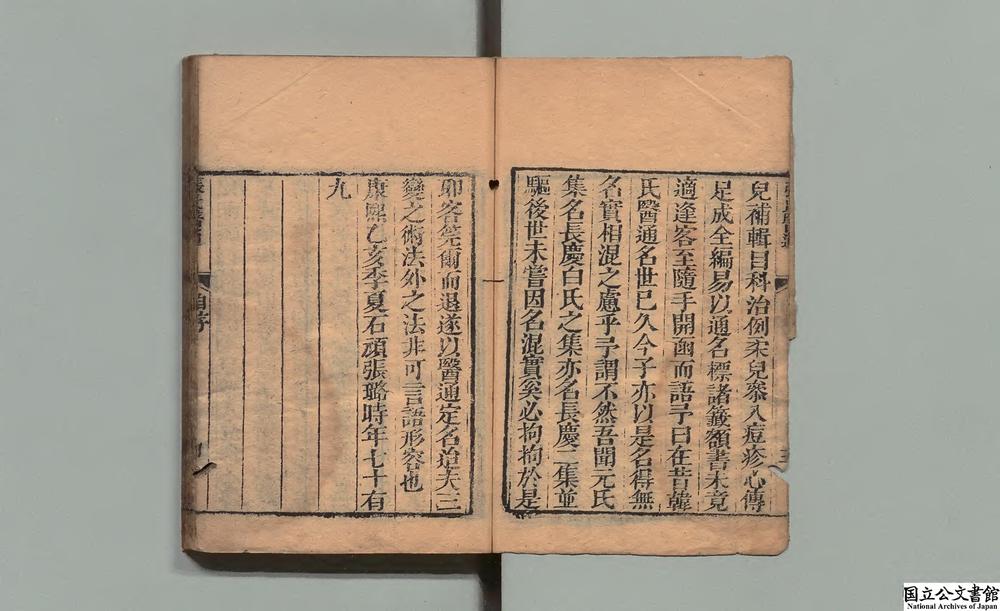 兒補輯目科治例柔兒叅入痘疹心傳
足成全編易以通名標諸籤額書未竟
適逢客至隨手開函而語予曰在昔韓
氏醫通名世已久今子亦以是名得無
名實相混之慮乎予謂不然吾聞元氏
集名長慶白氏之集亦名長慶二集並
驅後世未嘗因名混實奚必拘拘於是
卯客莞爾而退遂以醫通定名迨夫三
變之術法外之法非可言語形容也
康熙乙亥季夏石頑張璐時年七十有
九
自序
国立公文書館
National Archives of Japan